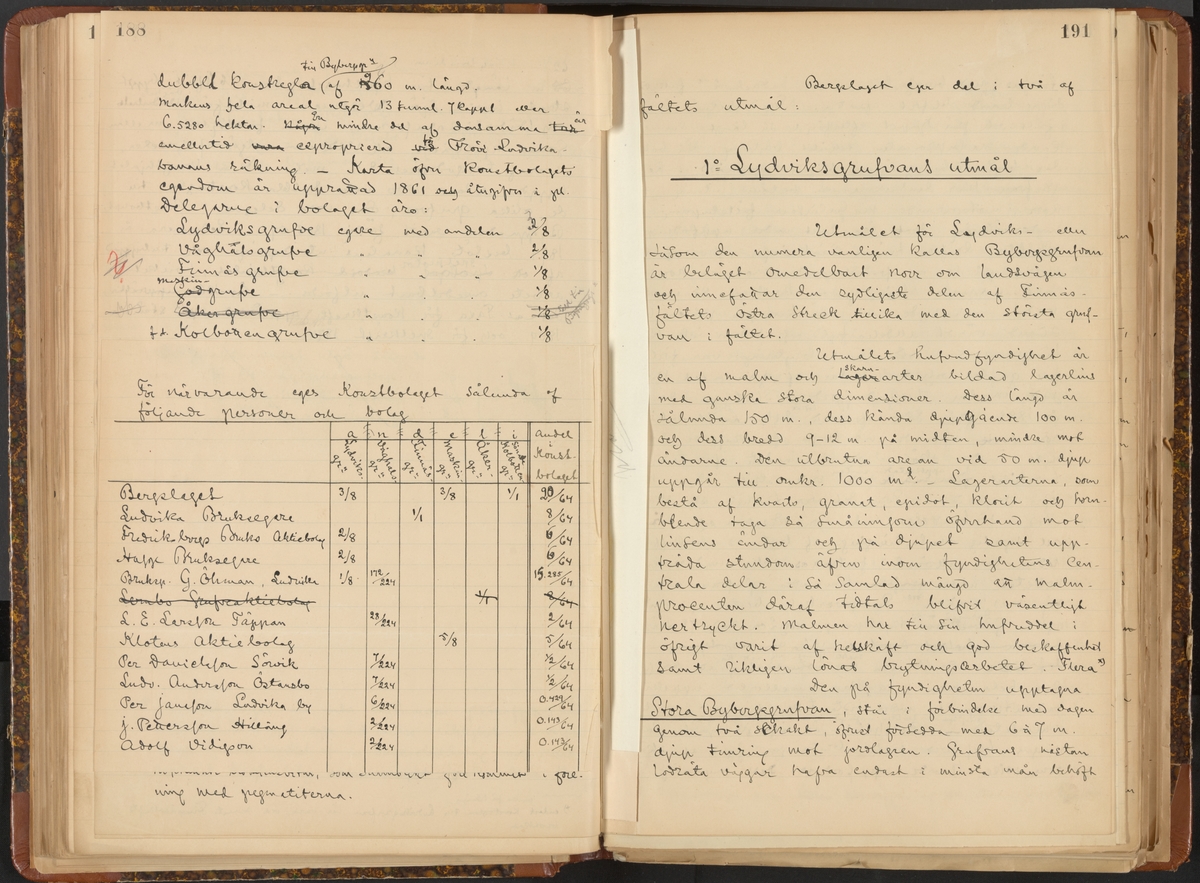 1 188
till Bybergsgr.
dubbla konstregla (af 260 m. längd.
Markens hela areal utgör 13 tunnl. 7 kappl eller
6.5280 hektar. En mindre del af densamma är
emellertid exproprierad för Frövi-Ludvika-
banans räkning. — Karta öfver Konstbolagets
egendom är upprättad 1861 och återgifves å pl.
Delegarne i bolaget äro:
Lydviksgrufve egare med andelen 2/8
Våghalsgrufve „ „ . 2/8
Finnäsgrufve „ „ . 1/8
maskin-
Godgrufve „ „ . 1/8
Åkergrufve „ „ . 1/8
Kolbottengrufve „ „ . 1/8
För närvarande eges Konstbolaget sålunda af
följande personer och bolag
a Lydviks-gr. n Våghals-gr. d Finnäs-gr. e Maskin-gr. t Åker-gr. i Kolbotten-gr. Andel i Konst-bolaget
Bergslaget 3/8 3/8 1/1 20/64
Ludvika Bruksegare 1/1 8/64
Fredriksbergs Bruks Aktiebolag 2/8 6/64
Hagge Bruksegare 2/8 6/64
Bruksp. G. Öhman, Ludvika 1/8 172/224 15.285/64
Lernbo Grufveaktiebolag 1/1 8/64
L. E. Larsson Täppan 28/224 2/64
Klotens Aktiebolag 5/8 5/64
Per Danielsson Sörvik 7/224 1/2/64
Ludv. Andersson Östansbo 7/224 1/2/64
Per Jansson Ludvika by 6/224 0.429/64
J. Pettersson Hilläng 2/224 0.143/64
Adolf Vidigson 2/224 0.143/64
ning med pegmatiterna.
191
Bergslaget eger del i två af
fältets utmål:
1º Lydviksgrufvans utmål
Utmålet för Lydviks- eller
såsom den numera vanligen kallas Bybergsgrufvan
är beläget omedelbart norr om landsvägen
och innefattar den sydligaste delen af Finnäs-
fältets östra streck tillika med den största gruf-
van i fältet.
Utmålets hufvudfyndighet är
skarn-
en af malm och lagerarter bildad lagerlins
med ganska stora dimensioner. Dess längd är
sålunda 150 m., dess kända djupgående 100 m.
och dess bredd 9-12 m på midten, mindre mot
ändarne. Den utbrutna arean vid 50 m. djup
uppgår till omkr. 1000 m². — Lagerarterna, som
bestå af kvarts, granat, epidot, klorit och horn-
blende taga så småningom öfverhand mot
linsens ändar och på djupet samt upp-
träda stundom äfven inom fyndighetens cen-
trala delar i så samlad mängd att malm-
procenten däraf tidtals blifvit väsentligt
nertryckt. Malmen har till sin hufvuddel i
öfrigt varit af helskäft och god beskaffenhet
samt rikligen lönat brytningsarbetet. Flera x)
Den på fyndigheten upptagna
Stora Bybergsgrufvan, står i förbindelse med dagen
genom två schakt, öfverst försedda med 6 à 7 m.
djup timring mot jordlagren. Grufvans nästan
lodräta väggar hafva endast i mindsta mån behöft